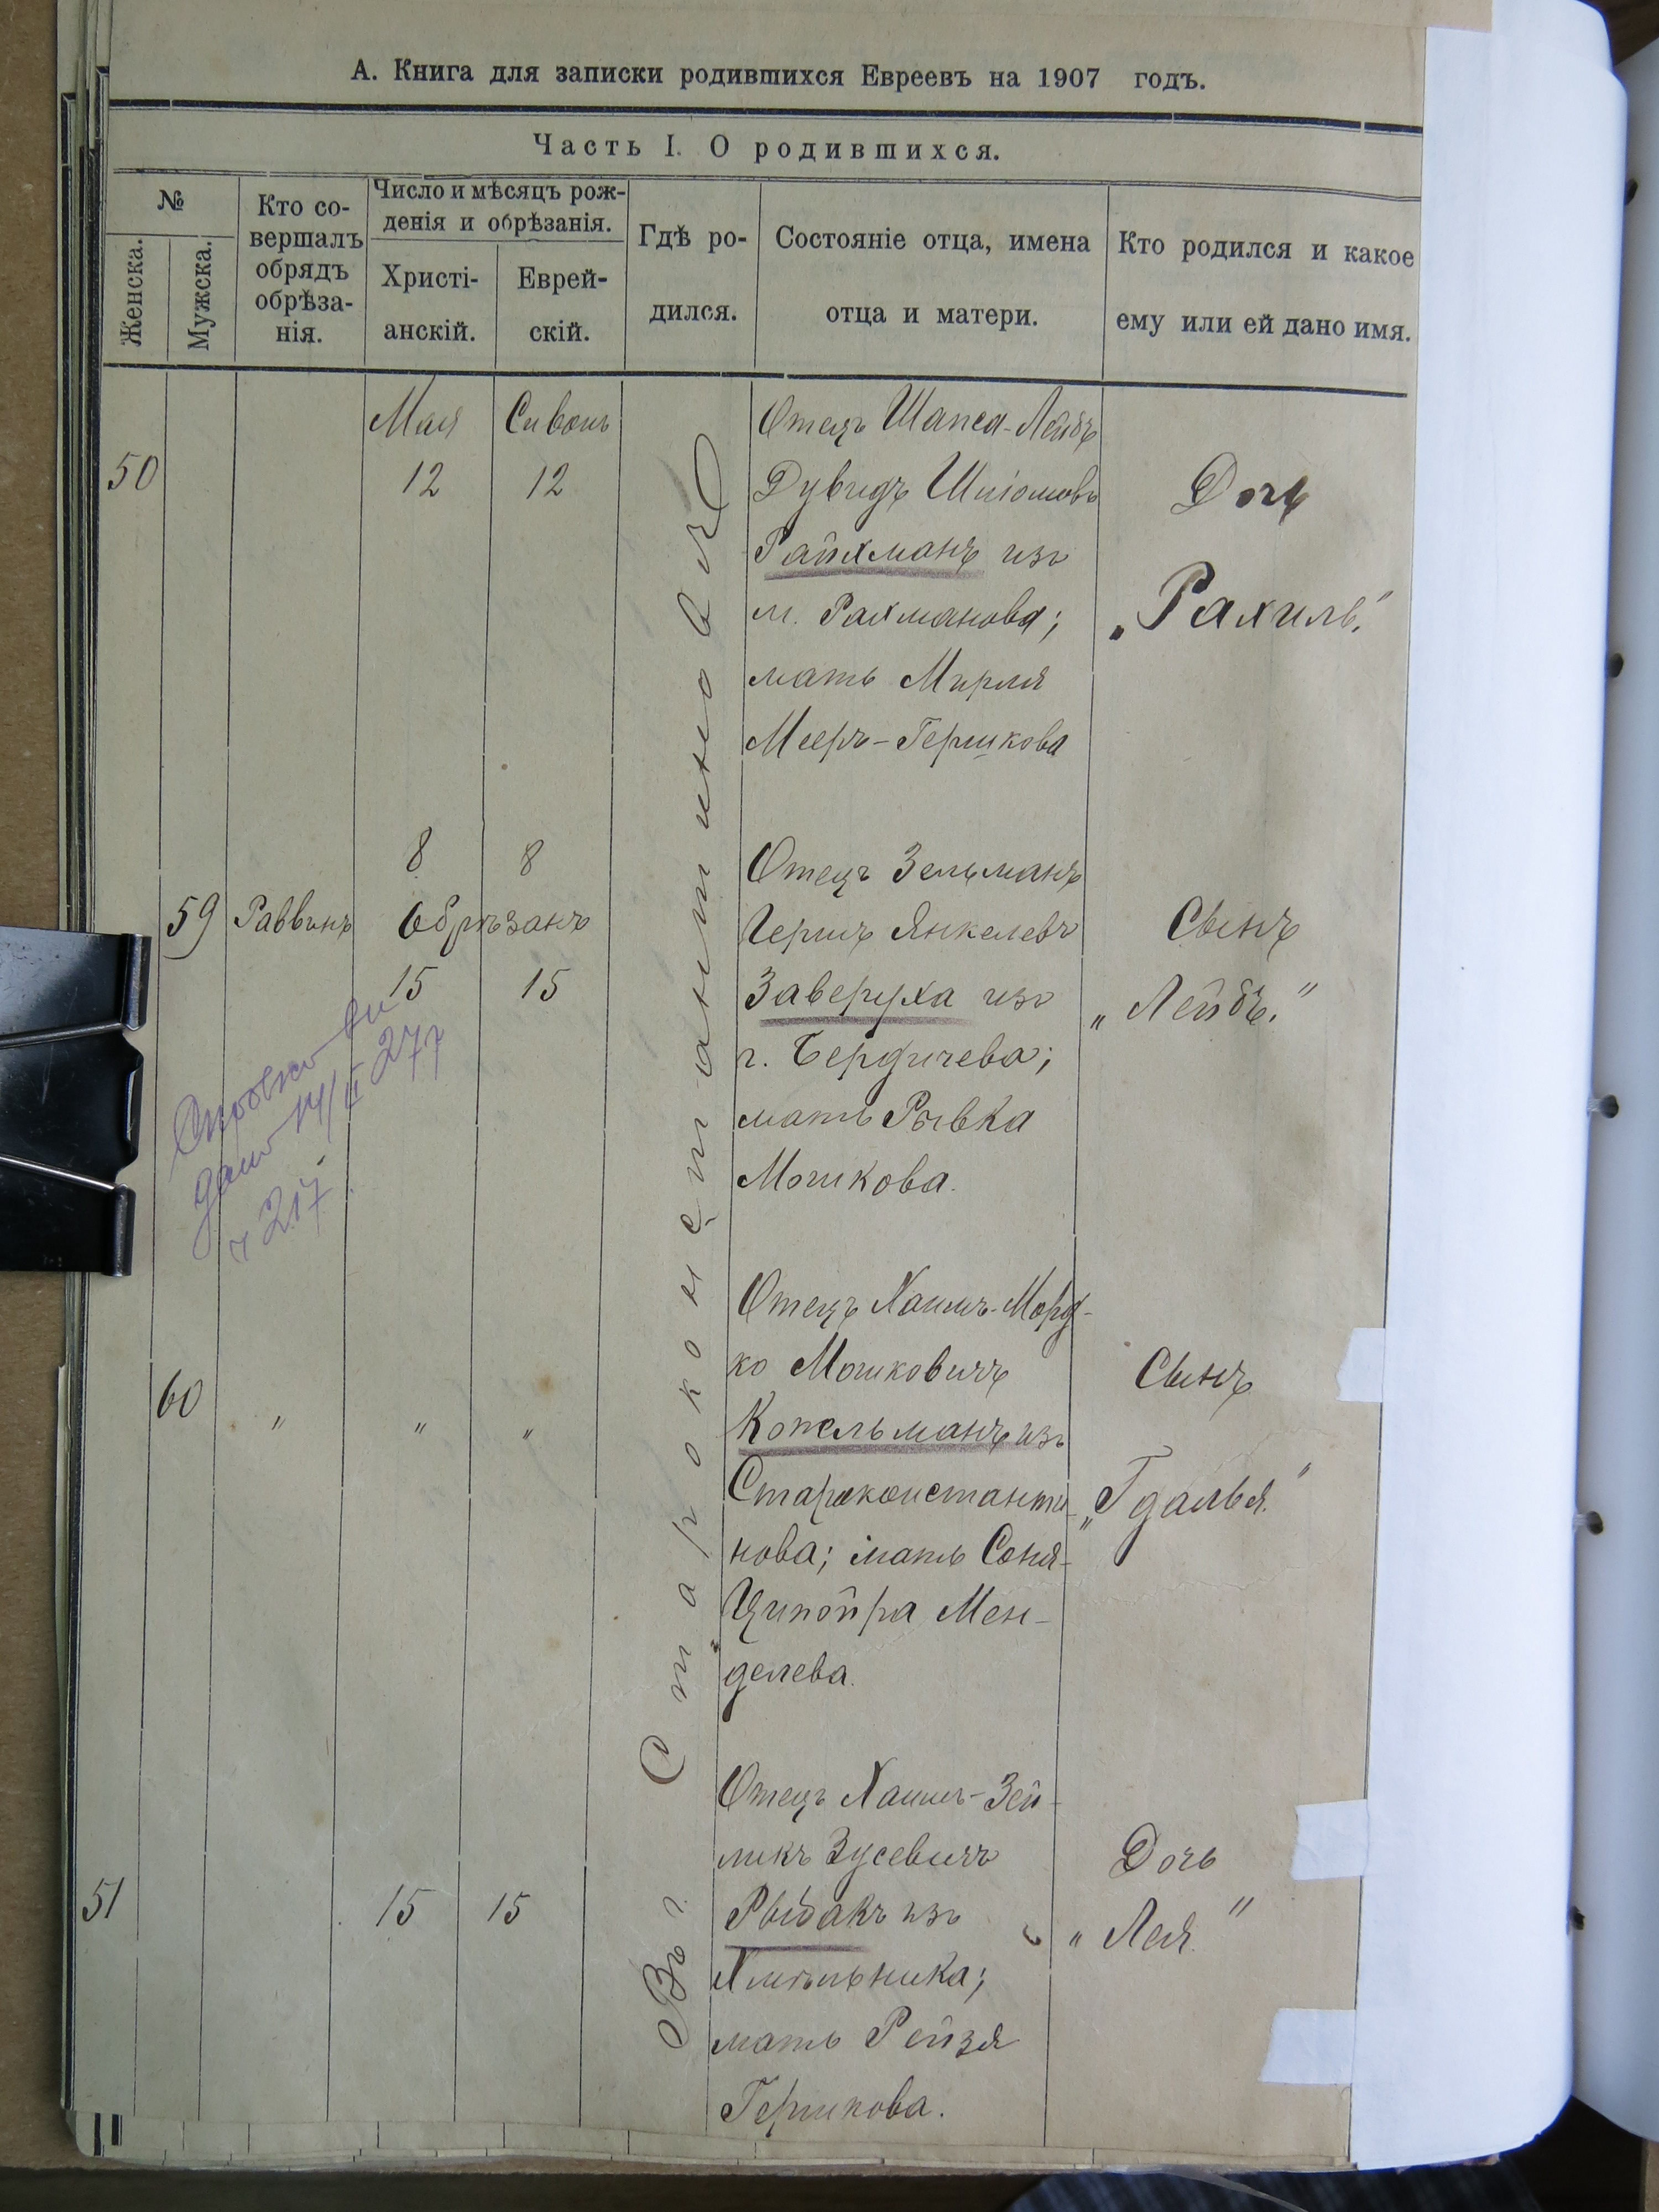 А. Книга для записки родившихся Евреевъ на 1907 годъ.
Часть I. О родившихся.
№
Женска.
Мужска.
Кто со-
вершалъ
обрядъ
обрѣза-
нія.
Число и мѣсяцъ рож-
денія и обрѣзанія.
Христі-
анскій.
Еврей-
скій.
Гдѣ ро-
дился.
Состояніе отца, имена
отца и матери.
Кто родился и какое
ему или ей дано имя.
Въ г. Староконстантиновѣ
50
Мая
12
Сивонъ
12
Отецъ Шапса-Лейбъ
Дувидъ Шліомовъ
Райхманъ изъ
м. Рахманова;
мать Мирля
Мееръ-Гершкова
Дочь
„Рахиль."
59
Раввинъ
8 8
Обрѣзанъ
15 15
Отецъ Зельманъ
Гершъ Янкелевъ
Заверуха изъ
г. Бердичева;
мать Рывка
Мошкова.
Сынъ
„Лейбъ."
дано 14/II 27 г
217
60
" " "
Отецъ Хаимъ-Морд-
ко Мошковичъ
Копельманъ изъ
Староконстанти-
нова; мать Соня-
Ципойра Мен-
делева.
Сынъ
„Гдалья."
51
15 15
Отецъ Хаимъ-Зей-
ликъ Зусевичъ
Рыбакъ изъ
Хмѣльника;
мать Рейзя
Гершкова.
Дочь
„Лея."